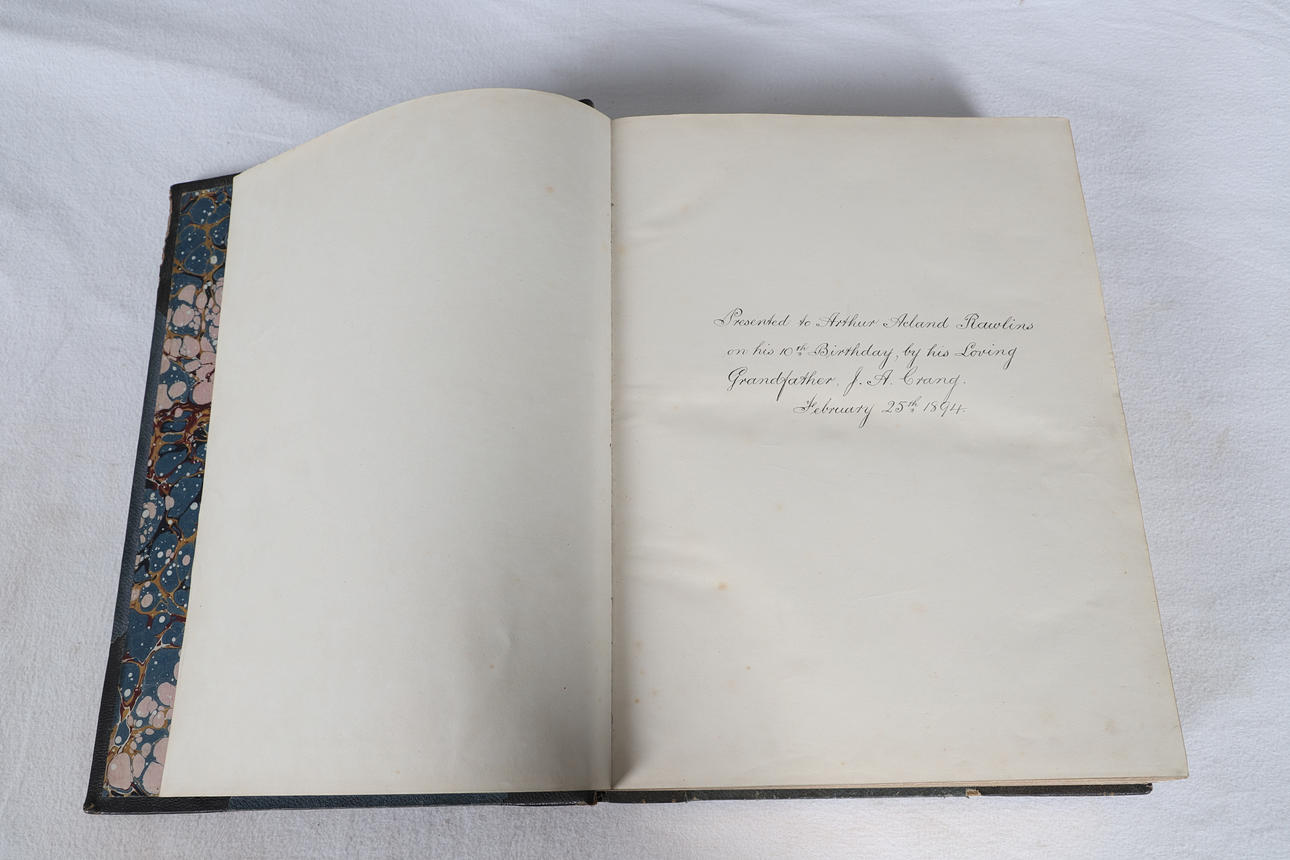 Presented to Arthur Acland Rawlins
on his 10th Birthday, by his Loving
Grandfather, J. A. Crang.
February 25th 1894.